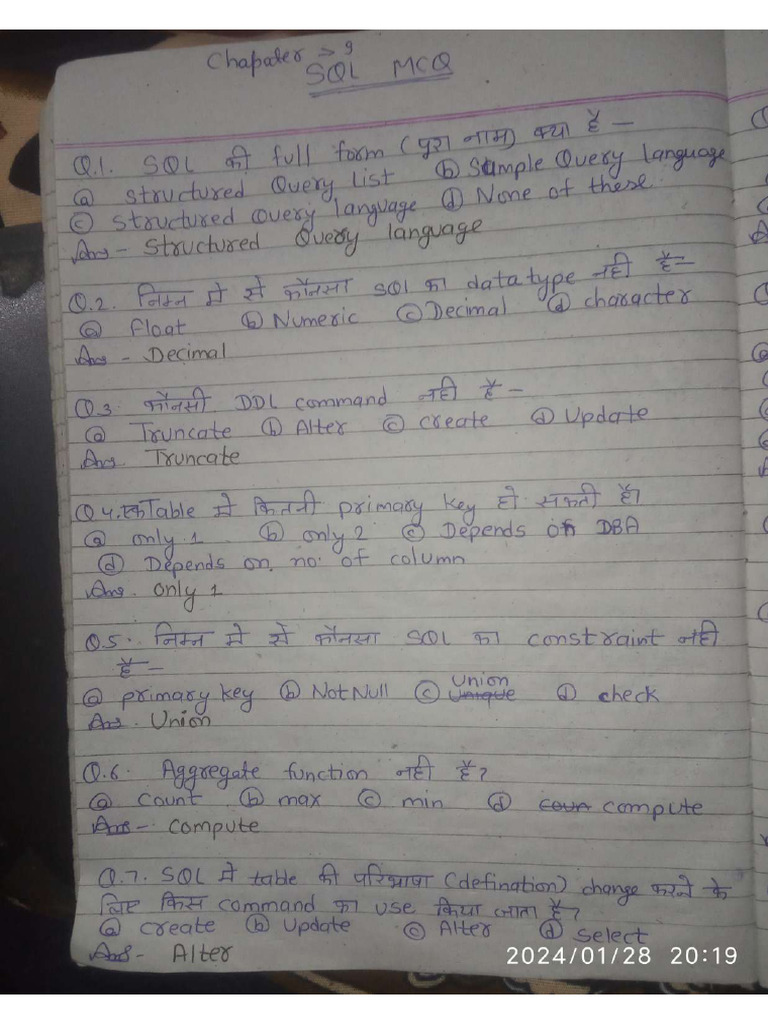 Chapater → 9
SQL MCQ
Q.1. SQL की full form (पूरा नाम) क्या है -
(a) Structured Query List (b) Simple Query language
(c) Structured Query language (d) None of these.
Ans - Structured Query language
Q.2. निम्न मे से कौनसा SQl का datatype नही है-
(a) float (b) Numeric (c) Decimal (d) character
Ans - Decimal
Q.3. कौनसी DDL command नही है -
(a) Truncate (b) Alter (c) create (d) Update
Ans. Truncate
Q4. एक Table मे कितनी primary key हो सकती है।
(a) only 1 (b) only 2 (c) Depends on DBA
(d) Depends on no. of column
Ans. only 1
Q.5. निम्न मे से कौनसा SQL का constraint नही
है -
(a) primary key (b) Not Null (c) Union (d) check
Ans. Union
Q.6. Aggregate function नही है?
(a) count (b) max (c) min (d) compute
Ans - compute
Q.7. SQL मे table की परिभाषा (defination) change करने के
लिए किस command का use किया जाता है?
(a) create (b) Update (c) Alter (d) select
Ans - Alter
2024/01/28 20:19